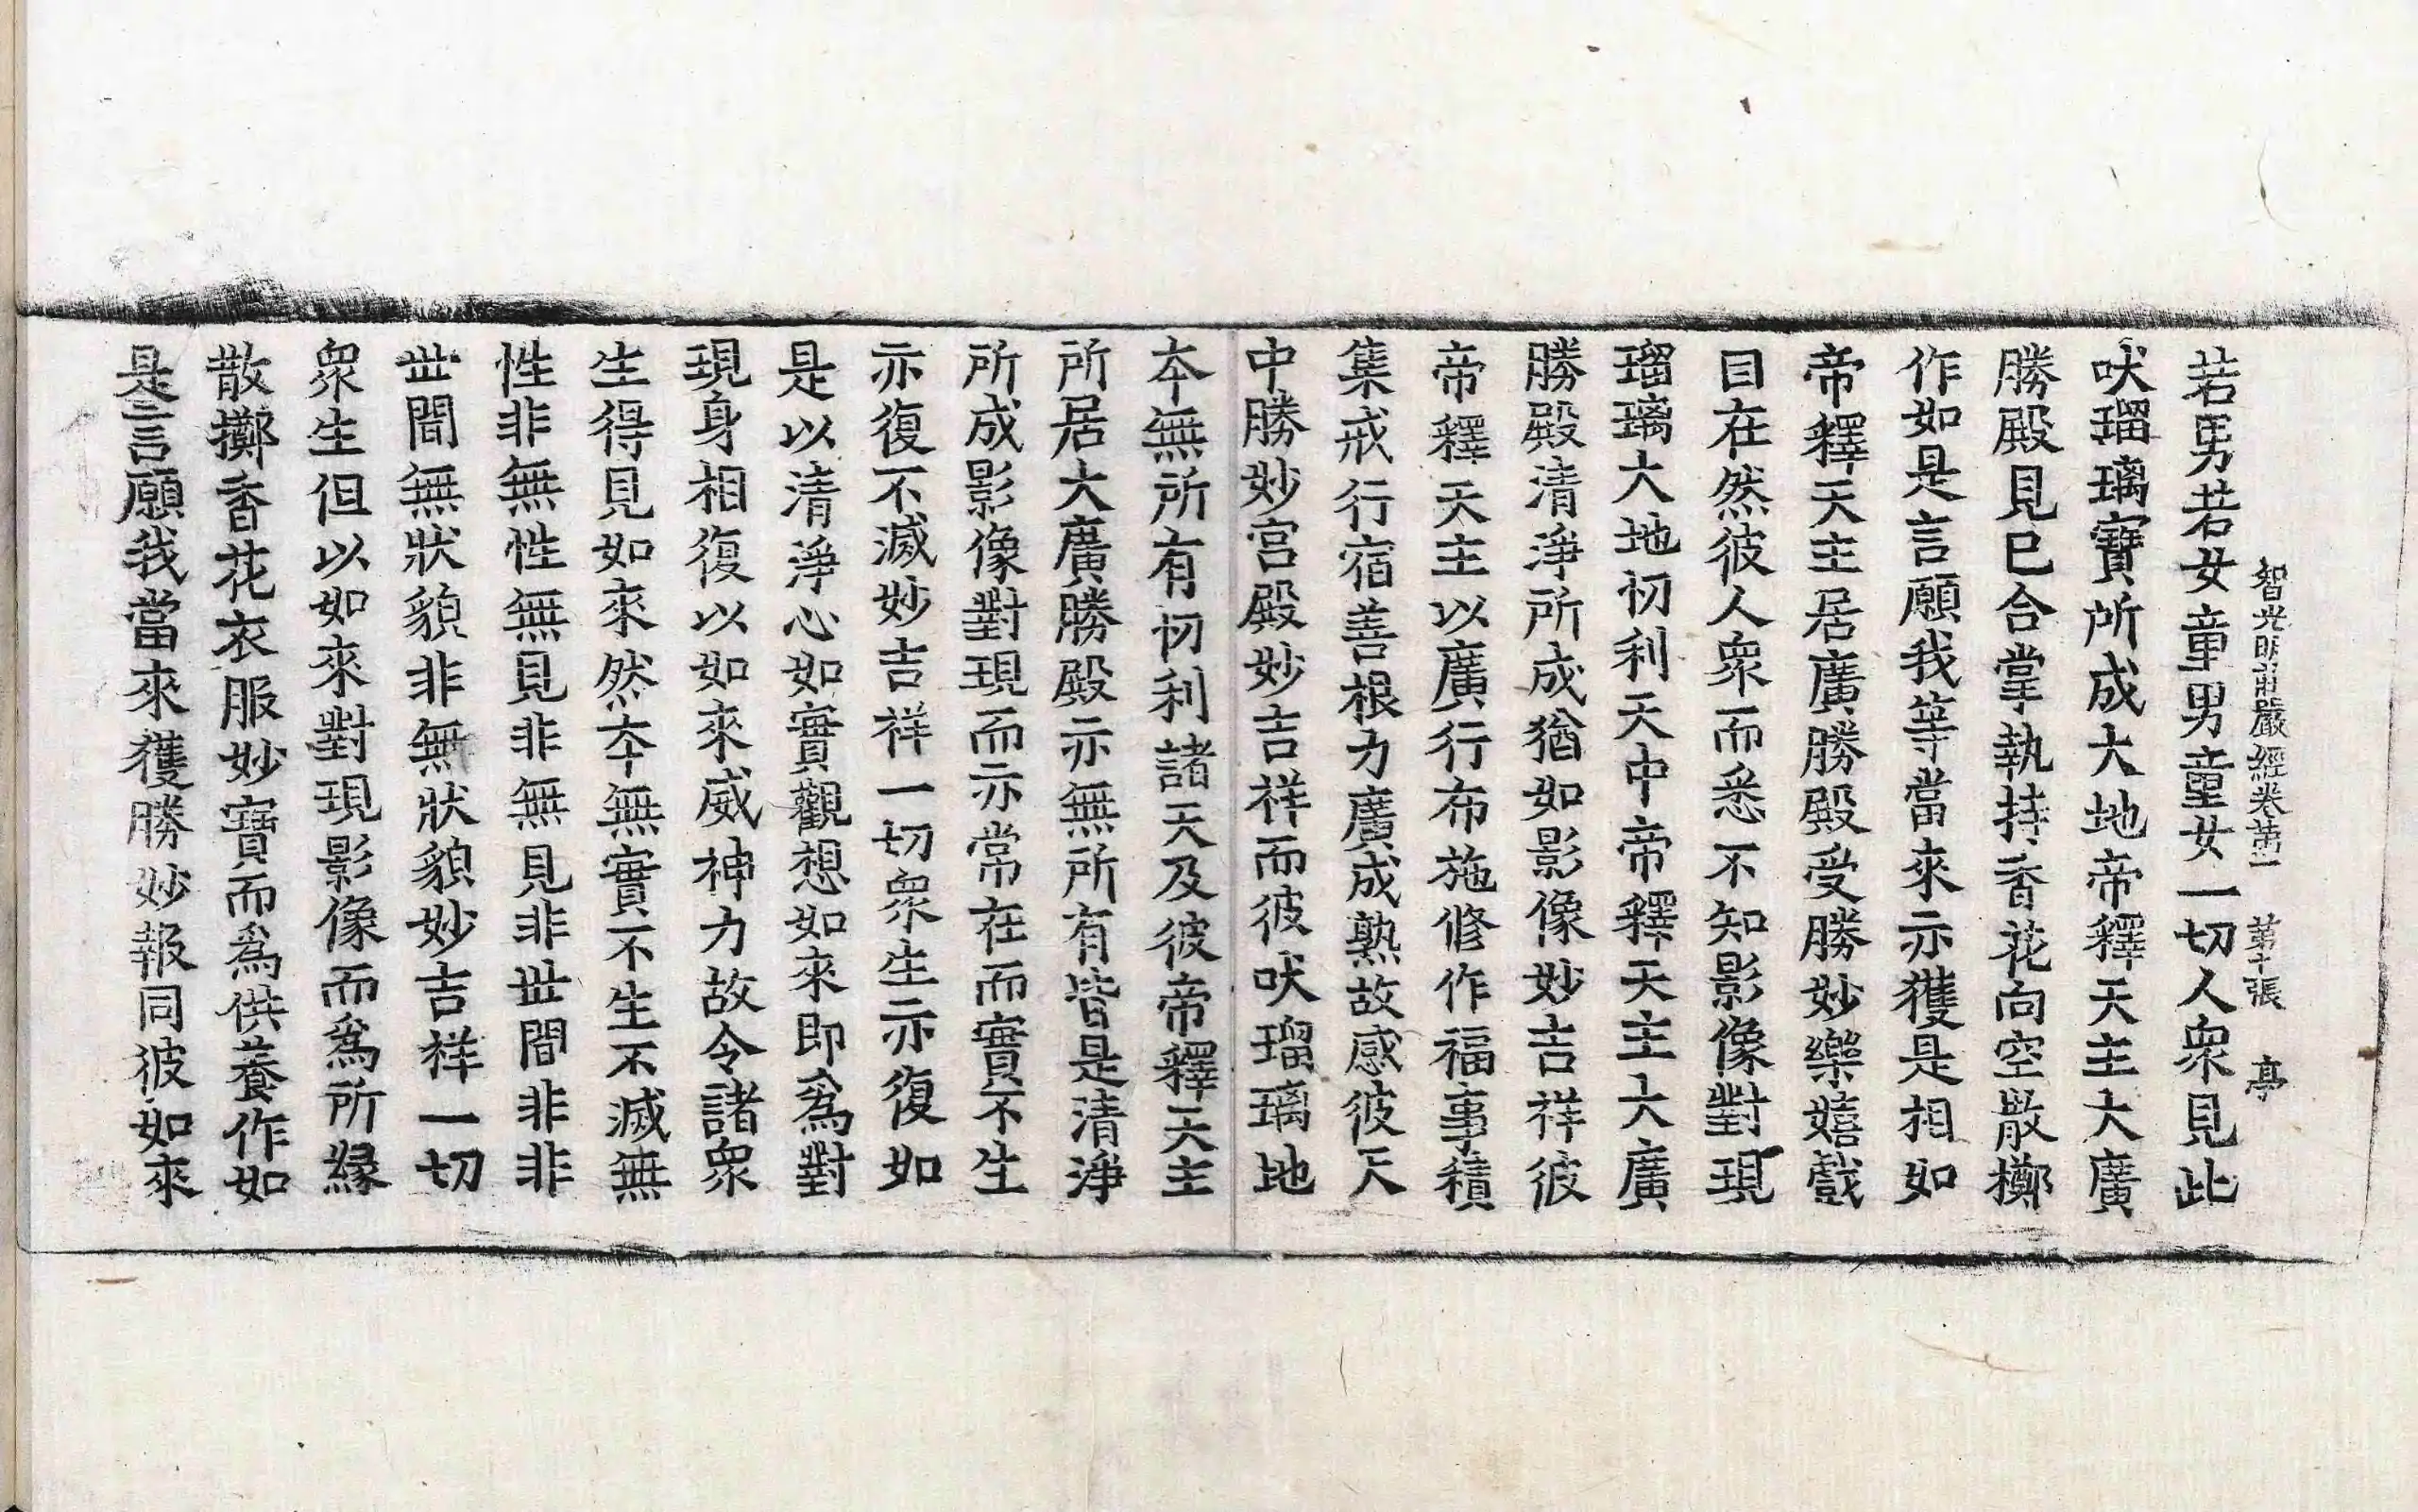 智光明莊嚴經卷第一　第十張　亭
若男若女童男童女一切人衆見此
吠瑠璃寶所成大地帝釋天主大廣
勝殿見已合掌執持香花向空散擲
作如是言願我等當來亦獲是相如
帝釋天主居廣勝殿受勝妙樂嬉戲
自在然彼人衆而悉不知影像對現
瑠璃大地忉利天中帝釋天主大廣
勝殿清淨所成猶如影像妙吉祥彼
帝釋天主以廣行布施修作福事積
集戒行宿善根力廣成熟故感彼天
中勝妙宮殿妙吉祥而彼吠瑠璃地
本無所有忉利諸天及彼帝釋天主
所居大廣勝殿亦無所有皆是清淨
所成影像對現而亦常在而實不生
亦復不滅妙吉祥一切衆生亦復如
是以清淨心如實觀想如來即爲對
現身相復以如來威神力故令諸衆
生得見如來然本無實不生不滅無
性非無性無見非無見非世間非非
世間無狀貌非無狀貌妙吉祥一切
衆生但以如來對現影像而爲所緣
散擲香花衣服妙寶而爲供養作如
是言願我當來獲勝妙報同彼如來